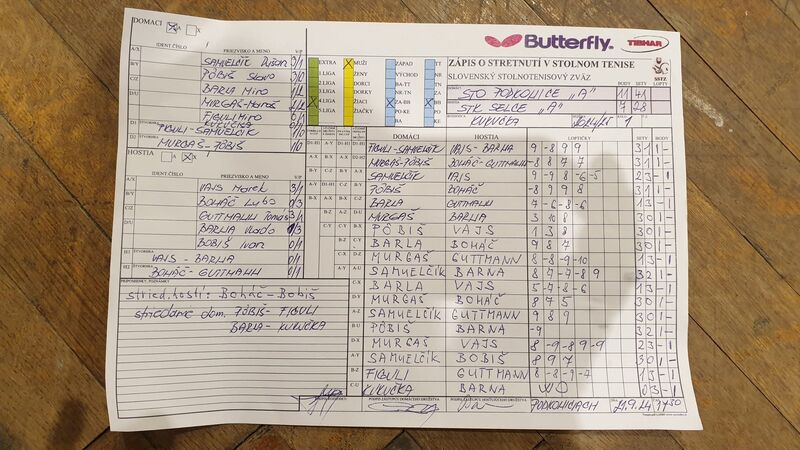 DOMÁCI X A X
IDENT. ČÍSLO PRIEZVISKO A MENO V/P
A/X SAMUELČÍK Dušan 3/1
B/Y PÖBIŠ Slavo 3/0
C/Z BARLA Miro 1/2
D/U MURGAŠ
FIGULI Miro 0/1
KUKUČKA 0/1
D1 FIGULI-SAMUELČÍK 1/0
D2 MURGAŠ-PÖBIŠ 1/0
HOSTIA A X X
IDENT. ČÍSLO PRIEZVISKO A MENO V/P
VAJS Marek 3/1
BOHÁČ Ľubo 0/3
GUTTMANN Tomáš 3/1
BARNA Vlado 1/3
BOBIŠ Ivan 0/1
H1 ŠTVORHRA VAJS - BARNA 0/1
H2 ŠTVORHRA BOHÁČ-GUTTMANN 0/1
PRIPOMIENKY, POZNÁMKY
stried. hostí: Boháč-Bobiš
striedanie dom. PÖBIŠ-FIGULI
BARLA-KUKUČKA
EXTRA
1.LIGA
2.LIGA
3.LIGA
4.LIGA
5.LIGA
X MUŽI
ŽENY
DORCI
DORKY
ŽIACI
ŽIAČKY
ZÁPAD TT
VÝCHOD BA
BA-TT TN
NR-TN ZA
X ZA-BB X BB
PO PO
KE KE
Butterfly
TIBHAR
ZÁPIS O STRETNUTÍ V STOLNOM TENISE
SLOVENSKÝ STOLNOTENISOVÝ ZVÄZ
SSTZ
BODY SETY LOPTY
STO PODKONICE "A" 11 41
STK SELCE "A" 7 28
KUKUČKA 1
DOMÁCI HOSTIA LOPTIČKY
FIGULI-SAMUELČÍK VAJS-BARNA 9 -8 9 9 3 1 1 -
MURGAŠ-PÖBIŠ BOHÁČ-GUTTMANN -8 8 7 7 3 1 1 -
SAMUELČÍK VAJS 9 -9 8 -6 -5 2 3 - 1
PÖBIŠ BOHÁČ -8 9 9 8 3 1 1 -
BARLA GUTTMANN 7 -6 -8 -6 1 3 - 1
MURGAŠ BARNA 3 10 8 3 0 1 -
PÖBIŠ VAJS 1 3 8 3 0 1 -
BARLA BOHÁČ 9 8 7 3 0 1 -
MURGAŠ GUTTMANN 8 -8 -9 -10 1 3 - 1
SAMUELČÍK BARNA 8 7 -7 -8 9 3 2 1 -
BARLA VAJS 5 -7 -8 -6 1 3 - 1
MURGAŠ BOHÁČ 8 7 5 3 0 1 -
SAMUELČÍK GUTTMANN 9 8 9 3 0 1 -
PÖBIŠ BARNA -9
MURGAŠ VAJS 8 -9 -8 9 -9 2 3 - 1
SAMUELČÍK BOBIŠ 8 9 7 3 0 1 -
FIGULI GUTTMANN 8 -8 -9 -7 1 3 - 1
KUKUČKA BARNA WO 0 3 - 1
PODPIS ZÁSTUPCU DOMÁCEHO DRUŽSTVA PODPIS ZÁSTUPCU HOSŤUJÚCEHO DRUŽSTVA PODKONICIACH 21.9.24